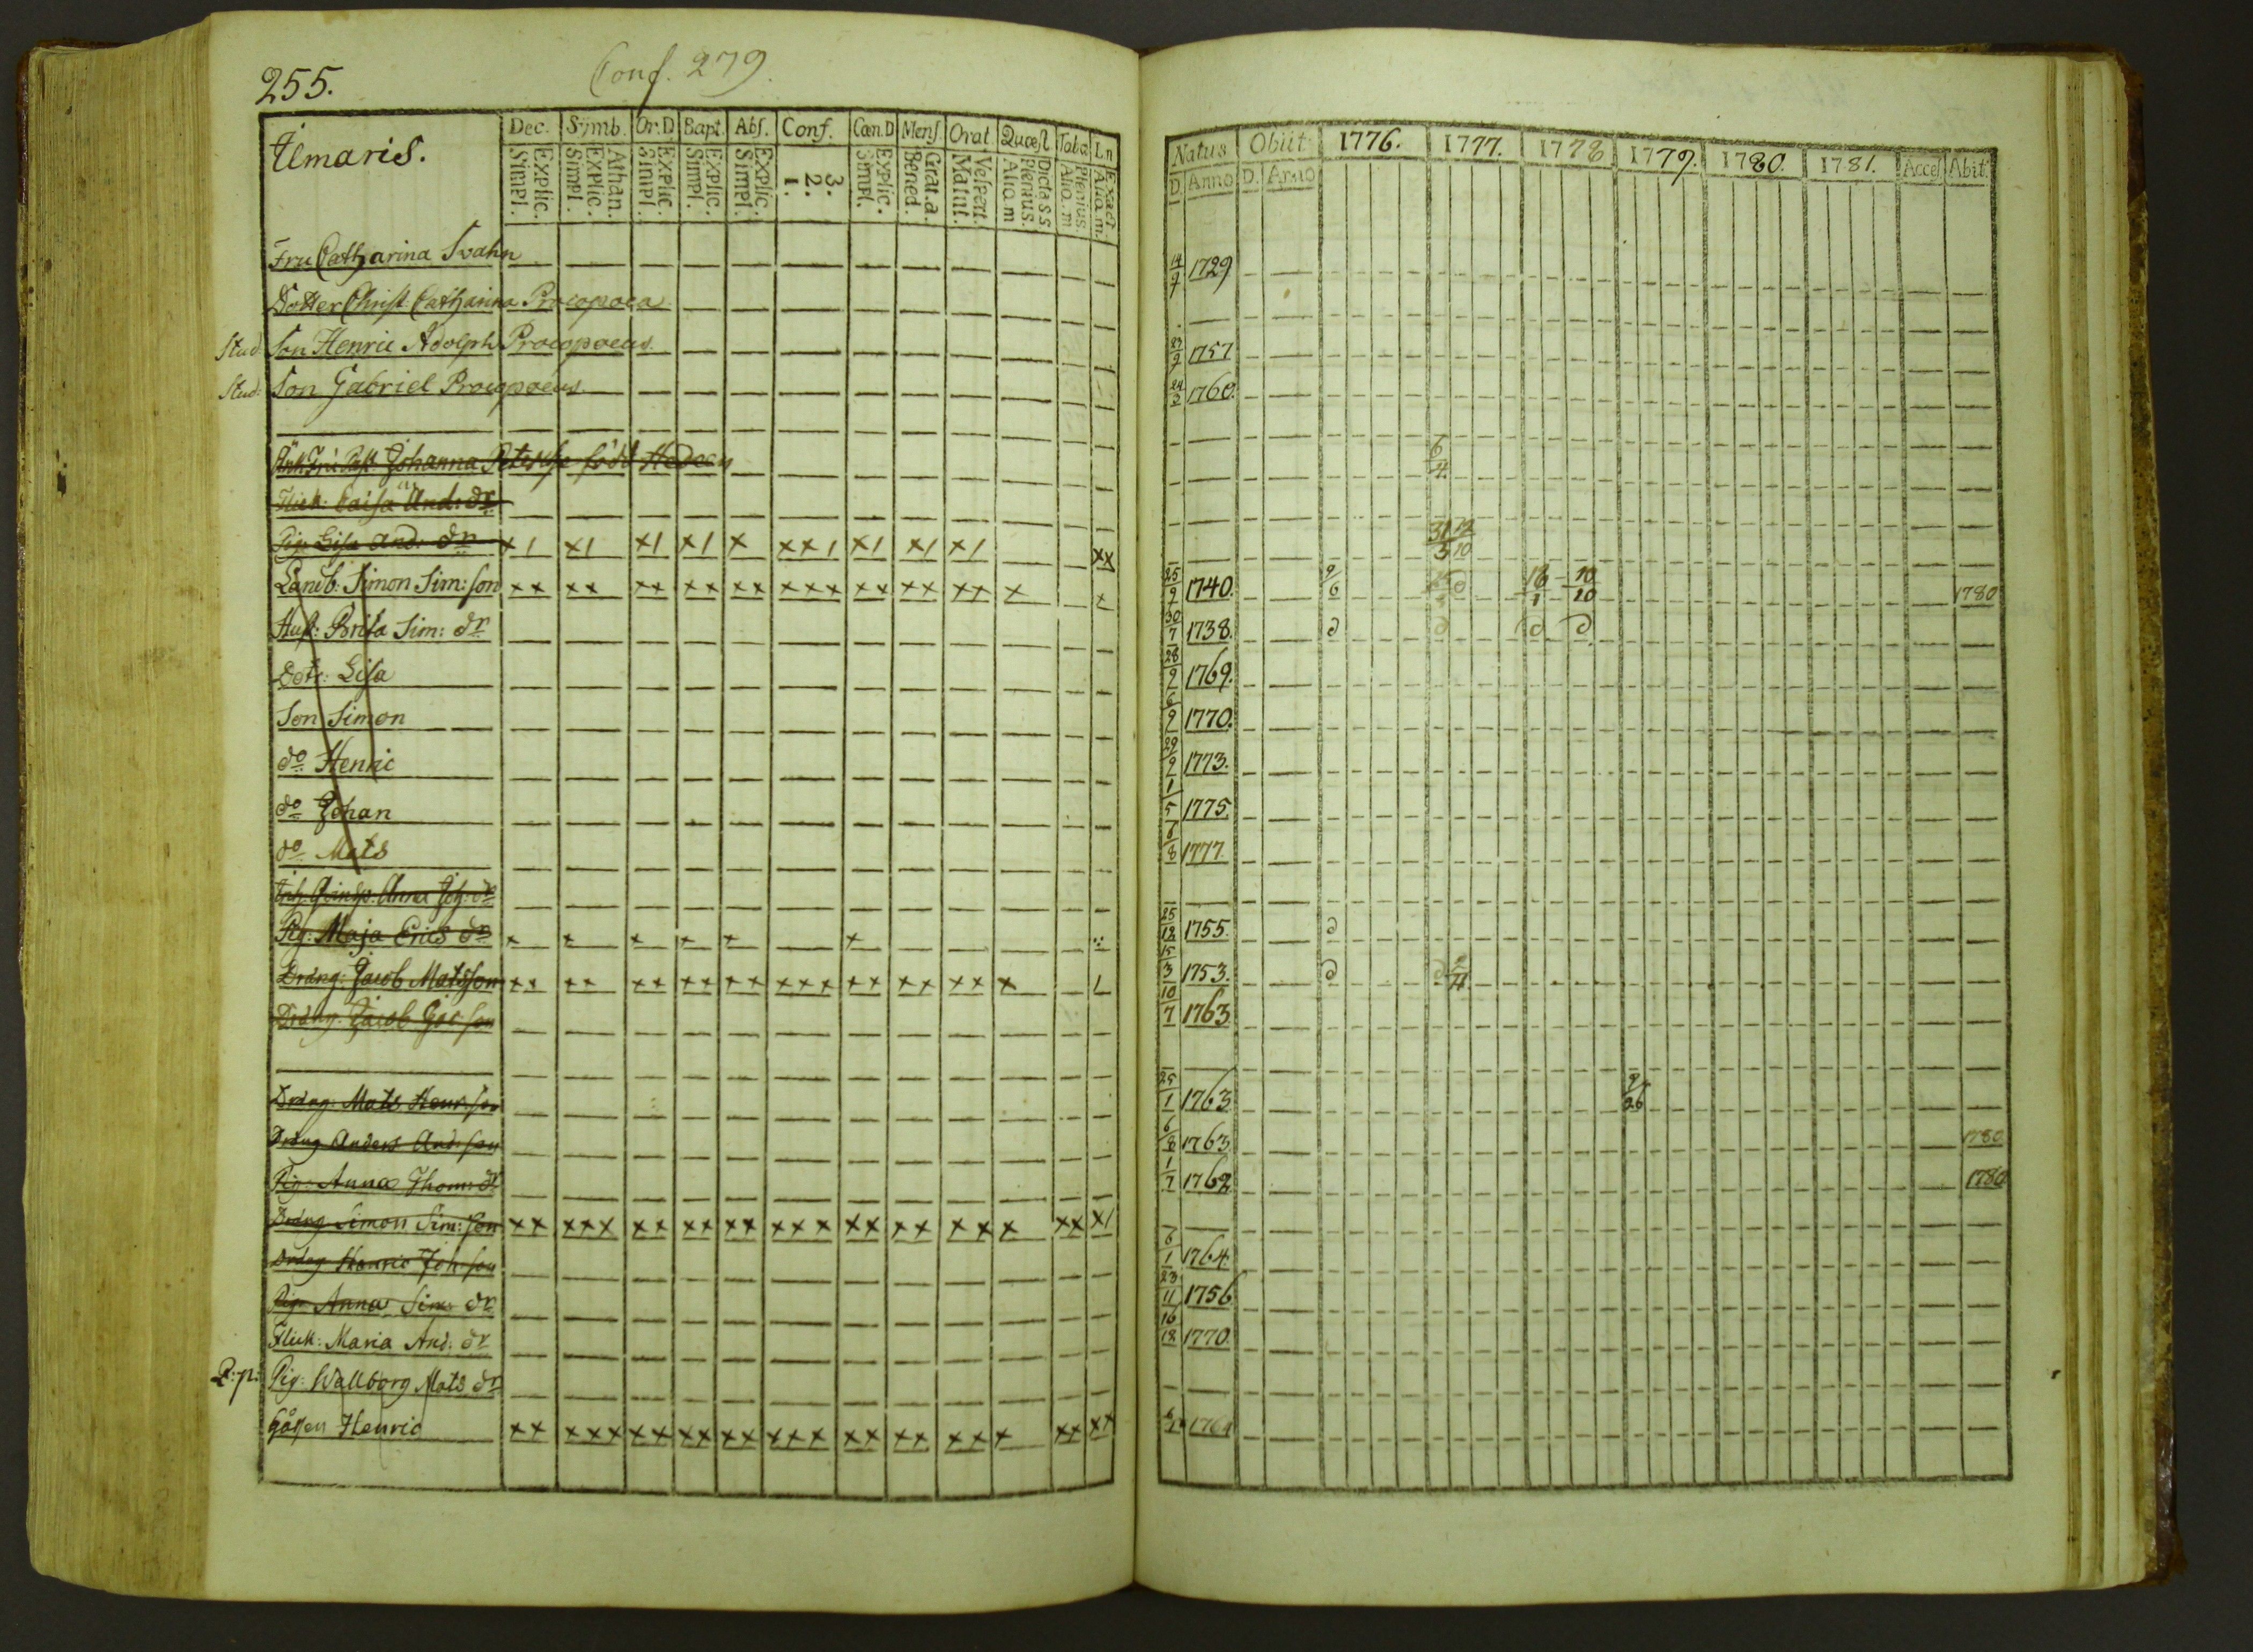 255.
Conf. 279
Ilmaris.
Dec. Symb. Or.D Bapt. Abs. Conf. Cœn.D Mens. Orat. Quæst Taba Ln
Simpl. Explic. Simpl. Explic. Athan. Simpl. Explic. Simpl. Explic. Simpl. Explic. 1. 2. 3. Simpl. Explic. Bened. Grat.a. Matut. Vespert. Aliq.m Plenius. Dict.a S S Aliq.m Plenius. Aliq.m. Exact
Fru Catharina Svahn
Dotter Christ: Catharina Procopoea
Stud Son Henric Adolph Procopoeus
Stud: Son Gabriel Procopoeus
Johanna född Hedeen
Flick: Caisa And: dr
Pig: Lisa And: dr x1 x1 x1 x1 x xx1 x1 x1 x1 xx
Landb: Simon Sim: son xx xx xx xx xx xxx xx xx xx x x
Hust: Brita Sim: dr
Dotr: Lisa
Son Simon
do Henric
do Johan
do Mats
Inh. Anna Joh: dr
Pig: Maja Erics dr x x x x x x
Dräng: Jacob Matsson xx xx xx xx xx xxx xx xx xx x 1
Dräng: Jacob son
Dräng: Mats Henr: son
Dräng Anders And: son
Pig: Anna Thom: dr
Dräng Simon Sim: son xx xxx xx xx xx xxx xx xx xx x xx x1
Dräng Henric Joh: son
Pig: Anna Sim: dr
Flick: Maria And: dr
Pig: Wallborg Mats dr
Gåssen Henric xx xxx xx xx xx xxx xx xx xx x xx xx
Natus Obiit 1776. 1777. 1778 1779. 1780. 1781. Acces. Abit.
D. Anno D. Anno
14/9 1729
23/9 1757
24/2 1760.
6/4
31/3 12/10
25/9 1740. 9/6 18/1 10/10 1780
30/7 1738. d d d d
28/9 1769.
6/9 1770.
29/9 1773.
1/5 1775.
8 1777.
25/12 1755. d
15/3 1753. d d
10/7 1763
25/1 1763 9/26
6/8 1763 1780
1/7 1762 1780
6/1 1764.
23/11 1756
16/18 1770.
1764